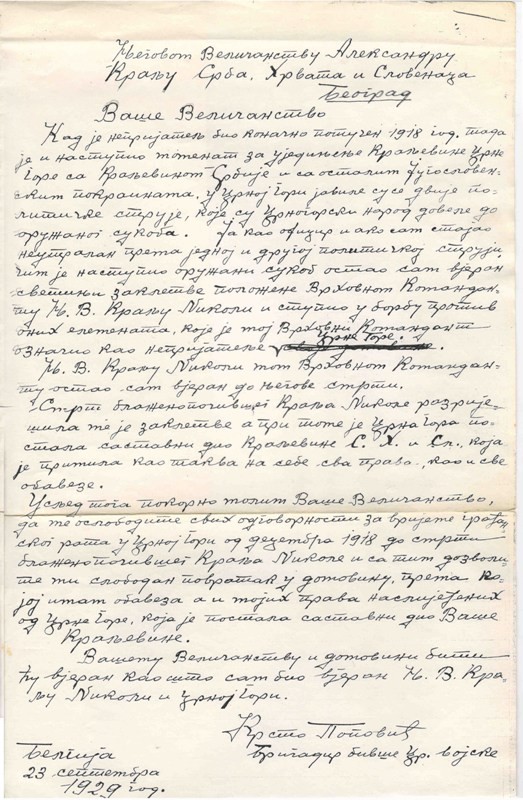 Његовом Величанству Александру
Краљу Срба, Хрвата и Словенаца
Београд
Ваше Величанство
Кад је непријатељ био коначно потучен 1918 год. тада
је и наступио моменат за уједињење Краљевине Црне
Горе са Краљевином Србије и са осталим Југословен-
ским покраинама. у Црној Гори јавиле су се двије по-
литичке струје, које су Црногорски народ довеле до
оружаног сукоба. Ја као официр и ако сам стајао
неутралан према једној и другој политичкој струји,
чим је наступио оружани сукоб остао сам вјеран
светињи заклетве положене Врховном Командан-
ту Њ. В. Краљу Николи и ступио у борбу против
оних елемената, које је мој Врховни Командант
означио као непријатеље Црне Горе.
Њ. В. Краљу Николи мом Врховном Командан-
ту остао сам вјеран до његове смрти.
Смрт блаженопочившег Краља Николе разрије-
шила ме је заклетве а при томе је Црна Гора по-
стала саставни дио Краљевине С. Х. и Сл., која
је примила као таква на себе сва права, као и све
обавезе.
Усљед тога покорно молим Ваше Величанство,
да ме ослободите свих одговорности за вријеме грађан-
ског рата у Црној Гори од децембра 1918 до смрти
блаженопочившег Краља Николе и са тим дозволи-
те ми слободан повратак у домовину, према ко-
јој имам обавеза а и мојих права наслијеђених
од Црне Горе, која је постала саставни дио Ваше
Краљевине.
Вашему Величанству и домовини бити
ћу вјеран као што сам био вјеран Њ. В. Кра-
љу Николи и Црној Гори.
Крсто Поповић
Бригадир бивше Цр. војске
Белгија
23 септембра
1929 год.